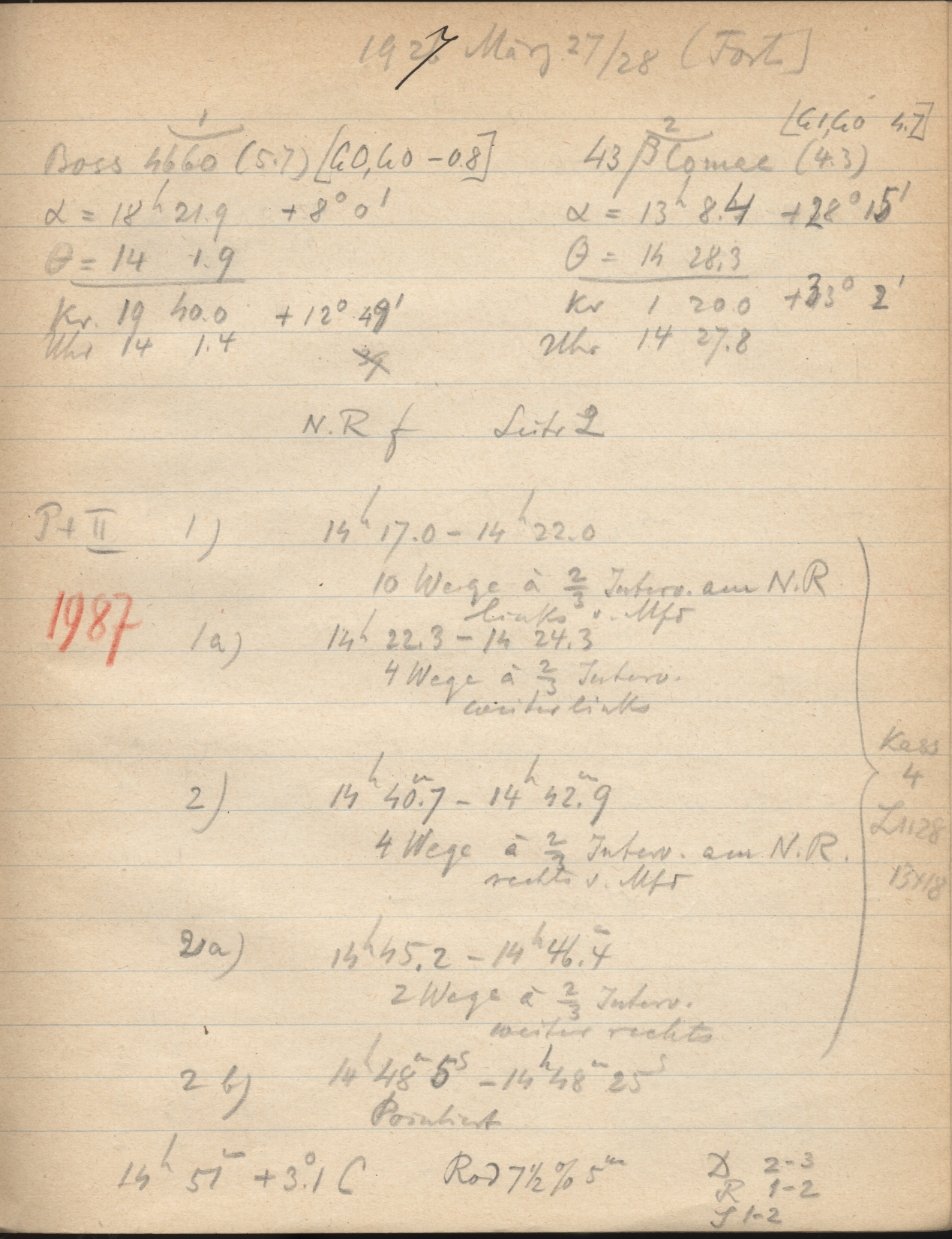 1927 März 27/28 (Fort]
1
Boss 4660 (5.7) [G0, G0 - 0.8]
α = 18h 21.9 +8° 0'
θ = 14 1.9
Kr. 19 40.0 +12° 49'
Uhr 14 1.4
2 [G1, G0 4.7]
43 β Comae (4.3)
α = 13h 8.4 +28° 15'
θ = 14 28.3
Kr 1 20.0 +33° 2'
Uhr 14 27.8
N.R f Seite 2
P+ II 1) 14h 17.0 - 14h 22.0
10 Wege à 2/3 Interv. am N.R
links v. Mfd
1987
1a) 14h 22.3 - 14 24.3
4 Wege à 2/3 Interv.
weiter links
2) 14h 40.m7 - 14h 42.m9
4 Wege à 2/3 Interv. am N.R.
rechts v. Mfd
Kass
4
L1128
13x18
2a) 14h 45.2 - 14h 46.m4
2 Wege à 2/3 Interv.
weiter rechts
2 b) 14h 48m 5s - 14h 48m 25s
Pointiert
14h 51m +3.°1 C Rod 7½% 5m
D 2-3
R 1-2
S 1-2